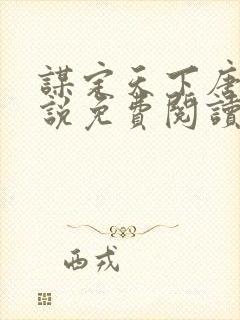 謀定天下唐
說免費閱讀
西戎